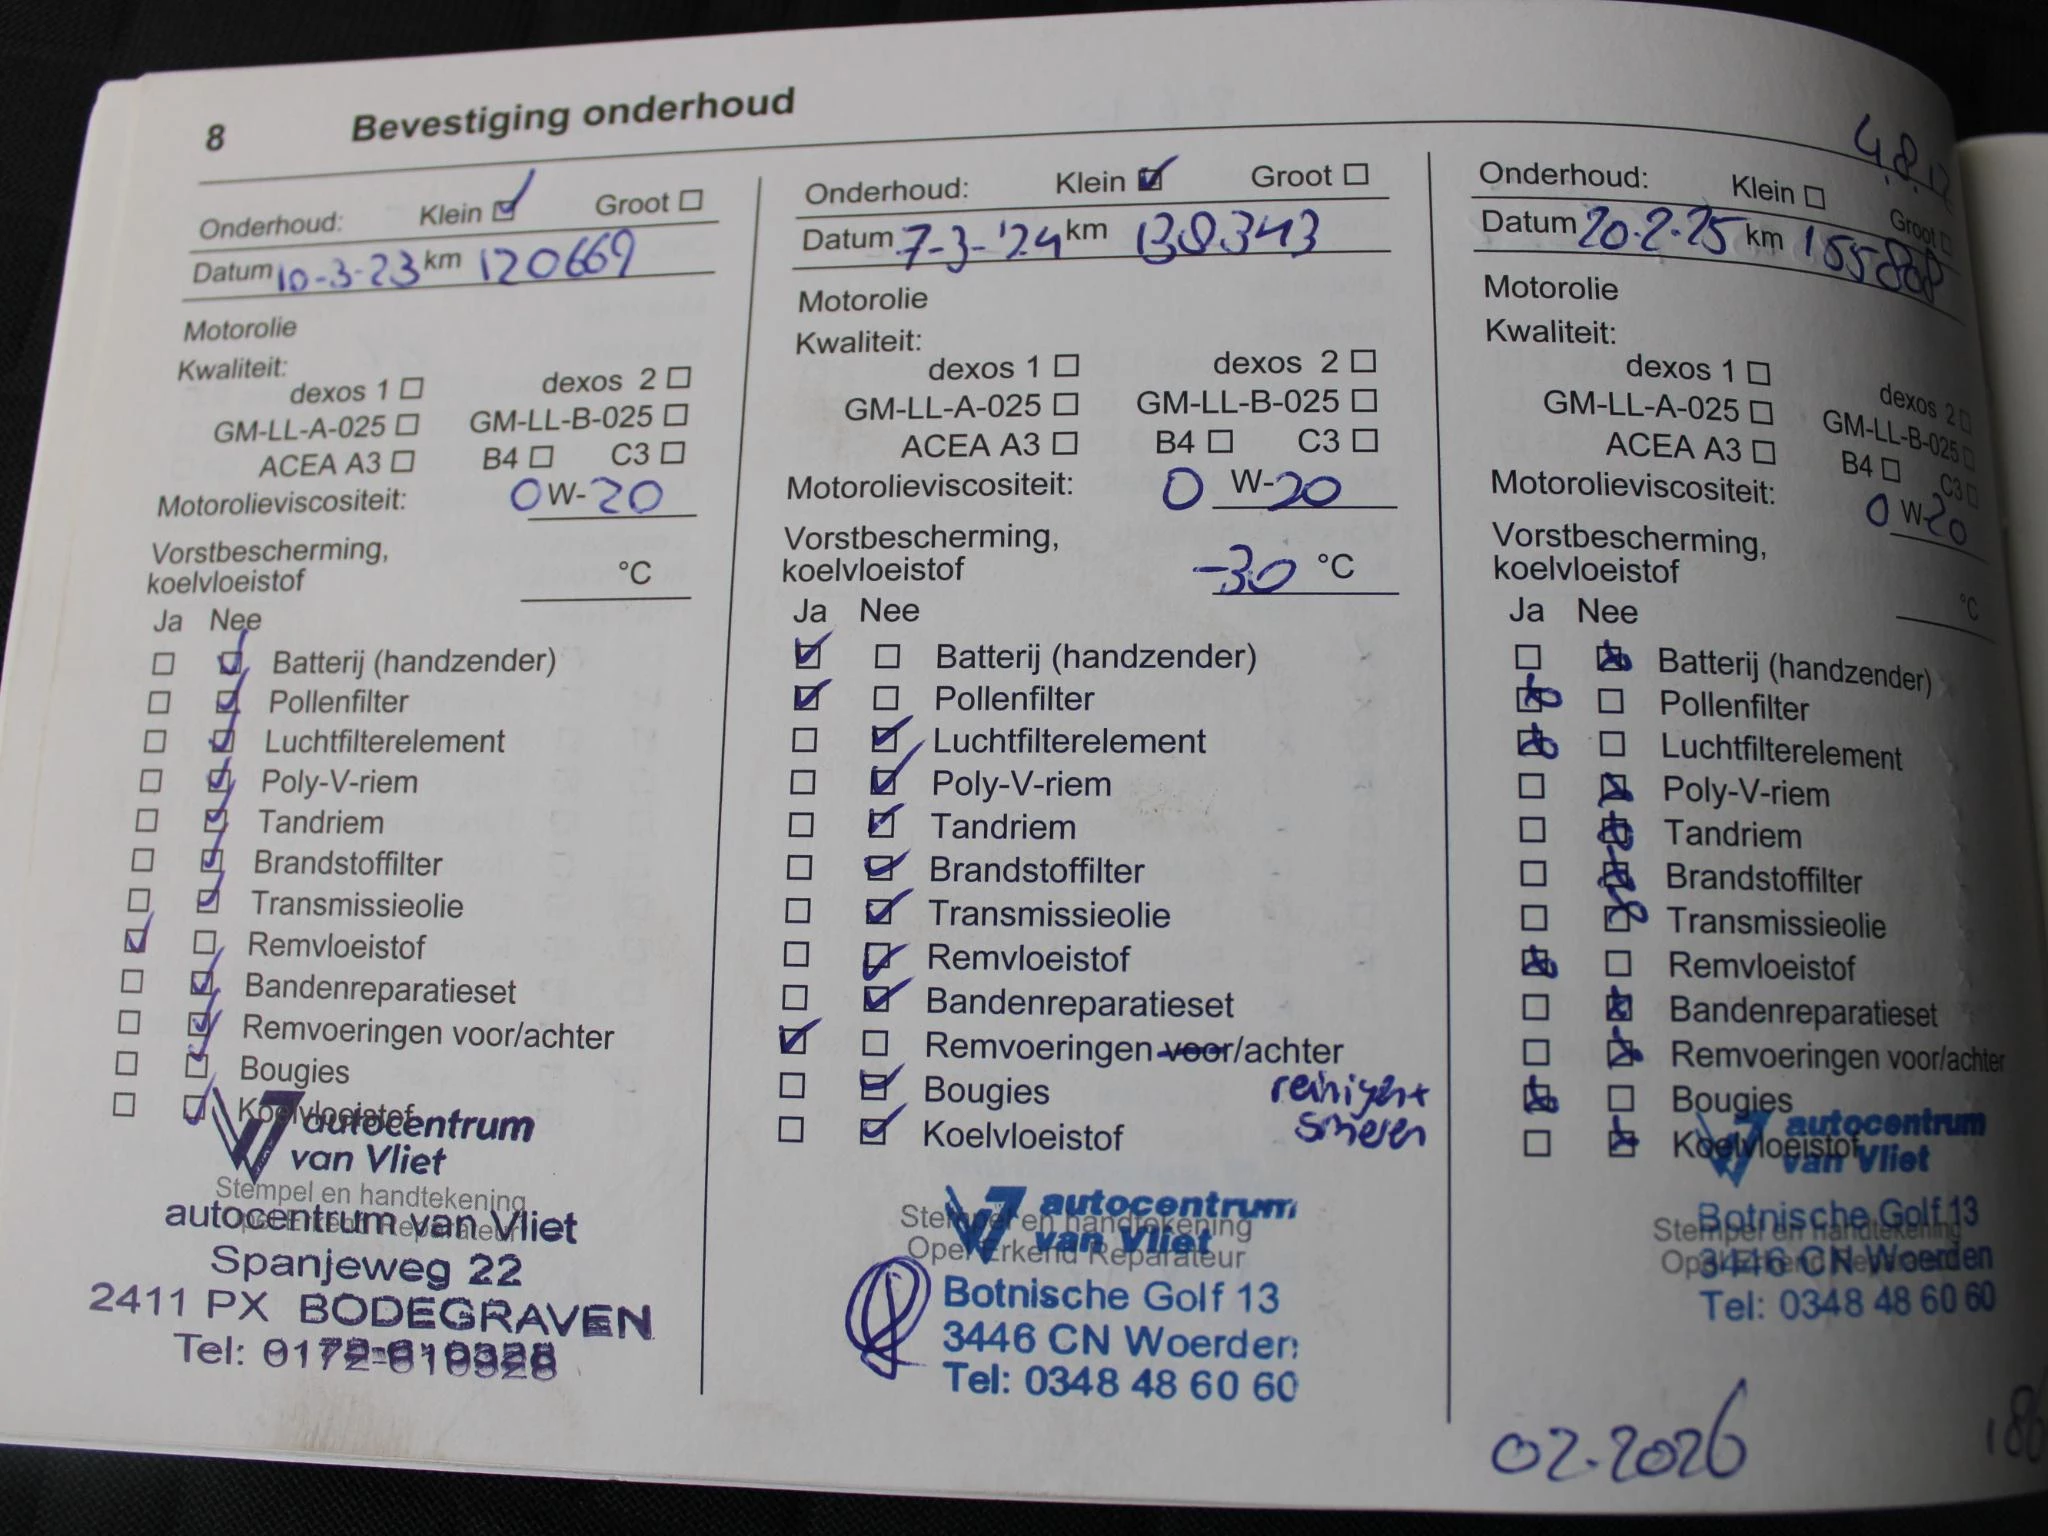 8 Bevestiging onderhoud
Onderhoud: Klein Groot
Datum 10-3-23 km 120669
Motorolie
Kwaliteit:
dexos 1 dexos 2
GM-LL-A-025 GM-LL-B-025
ACEA A3 B4 C3
Motorolieviscositeit: 0 W-20
Vorstbescherming,
koelvloeistof °C
Ja Nee
Batterij (handzender)
Pollenfilter
Luchtfilterelement
Poly-V-riem
Tandriem
Brandstoffilter
Transmissieolie
Remvloeistof
Bandenreparatieset
Remvoeringen voor/achter
Bougies
Koelvloeistof
autocentrum
van Vliet
Stempel en handtekening
Opel Erkend Reparateur
autocentrum van Vliet
Spanjeweg 22
2411 PX BODEGRAVEN
Tel:
Onderhoud: Klein Groot
Datum 7-3-'24 km 138343
Motorolie
Kwaliteit:
dexos 1 dexos 2
GM-LL-A-025 GM-LL-B-025
ACEA A3 B4 C3
Motorolieviscositeit: 0 W-20
Vorstbescherming,
koelvloeistof -30 °C
Ja Nee
Batterij (handzender)
Pollenfilter
Luchtfilterelement
Poly-V-riem
Tandriem
Brandstoffilter
Transmissieolie
Remvloeistof
Bandenreparatieset
Remvoeringen voor/achter
Bougies
Koelvloeistof
smeren
autocentrum
van Vliet
Stempel en handtekening
Opel Erkend Reparateur
Botnische Golf 13
3446 CN Woerden
Tel: 0348 48 60 60
Onderhoud: Klein Groot
Datum 20-2-25 km 155808
Motorolie
Kwaliteit:
dexos 1 dexos 2
GM-LL-A-025 GM-LL-B-025
ACEA A3 B4 C3
Motorolieviscositeit: 0 W-20
Vorstbescherming,
koelvloeistof °C
Ja Nee
Batterij (handzender)
Pollenfilter
Luchtfilterelement
Poly-V-riem
Tandriem
Brandstoffilter
Transmissieolie
Remvloeistof
Bandenreparatieset
Remvoeringen voor/achter
Bougies
Koelvloeistof
autocentrum
van Vliet
Stempel en handtekening
Botnische Golf 13
3446 CN Woerden
Tel: 0348 48 60 60
02-2026